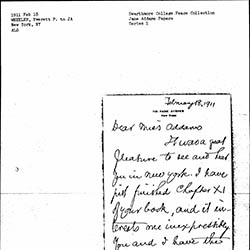 1911 Feb 18
WHEELER, Everett P. to JA
New York, NY
ALS
Swarthmore College Peace Collection
Jane Addams Papers
Series 1
February 18, 1911
NEW YORK
Dear Miss Addams
It was a great
pleasure to see and hear
you in new york. I have
just finished Chapter XI
of your book, and it in-
terests me inexpressibly
You and I have this